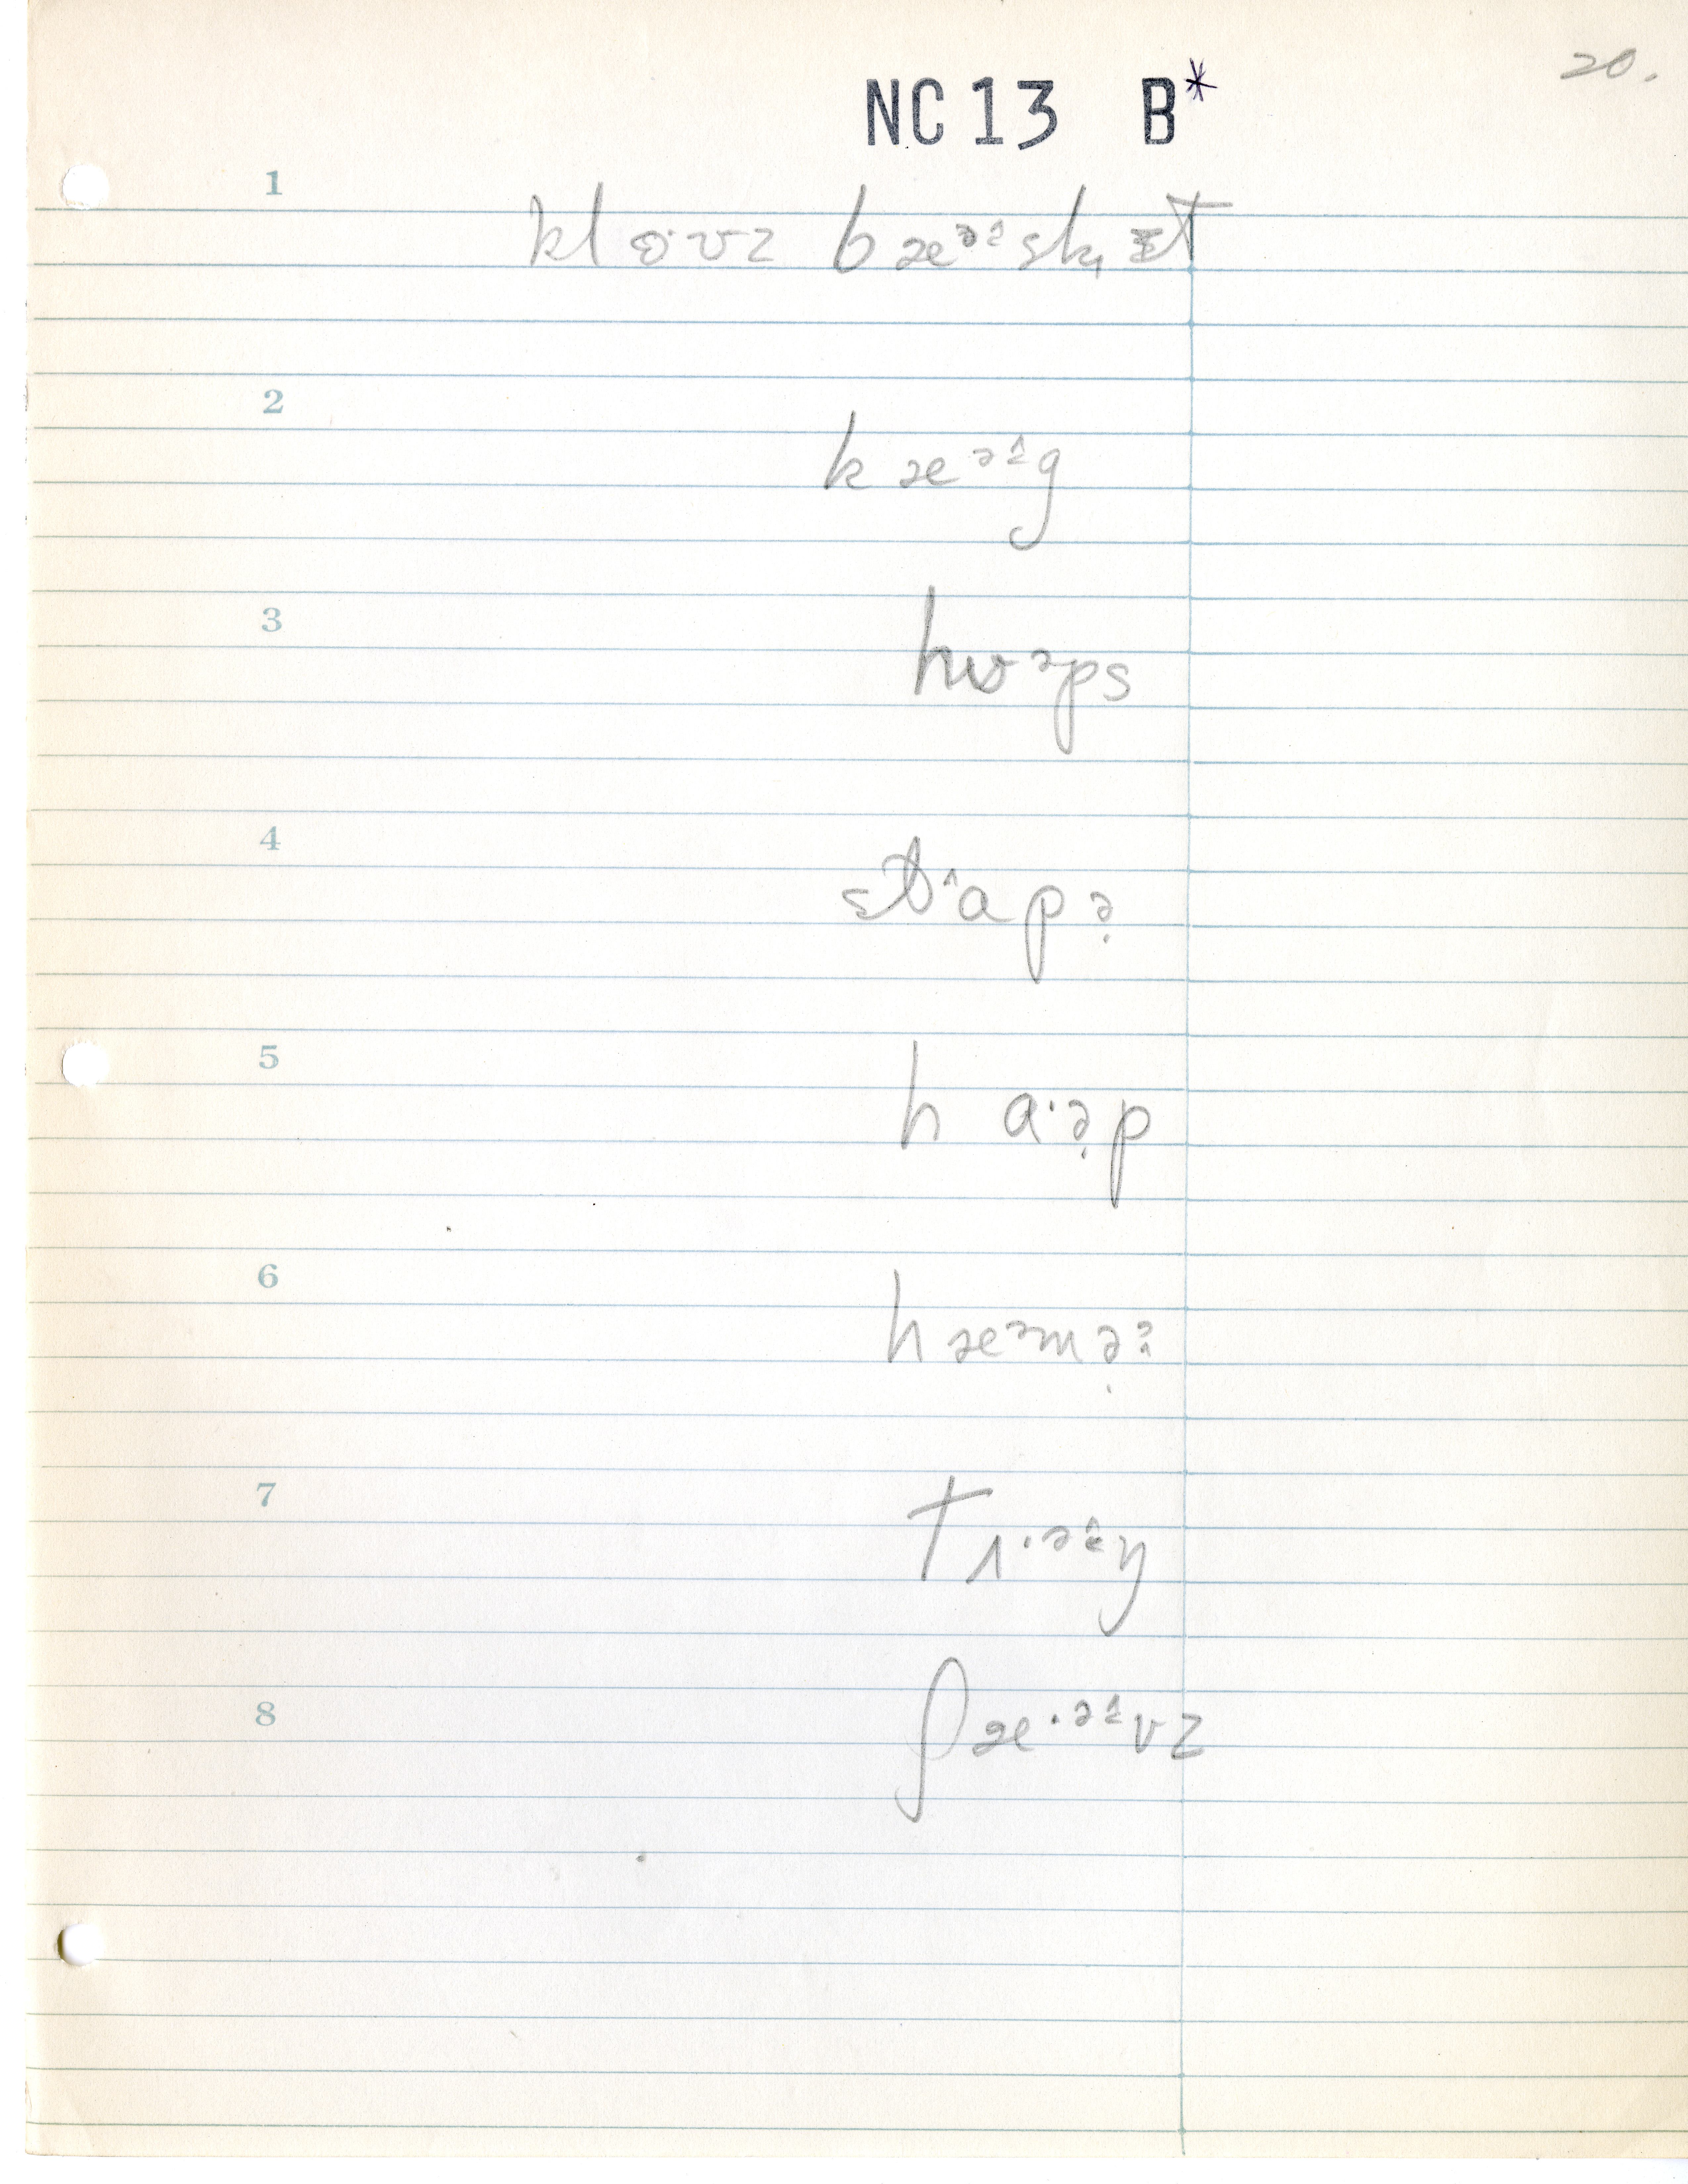 20.
NC 13 B*
1
klɵ·vz bæᵊᵋ̂sk̟ɪt
2
kæᵊᵋ̂g
3
hʊᵊps
4
stɒ^ɑpə̣
5
hɑ·ə̣p
6
hæᵊmə̣ᵊ
7
tʌ·ᵊᵋ̂ŋ
8
ʃæ·ᵊᵋ̂vz